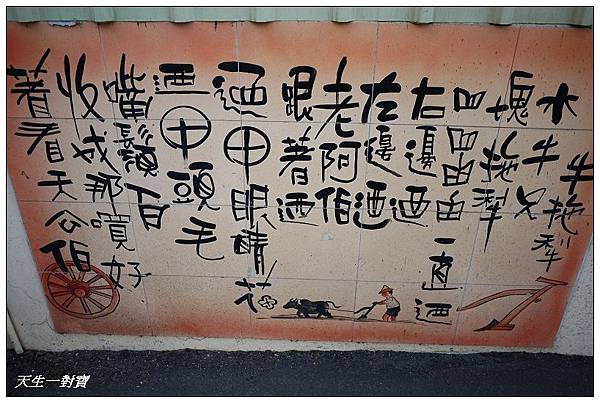 牛拖犁
水牛兄
塊拖犁
一直迺
右邊迺
左邊迺
老阿伯
跟著迺
迺甲眼睛花
迺甲頭毛
嘴鬚白
收成那好
著看天公伯
天生一對寶